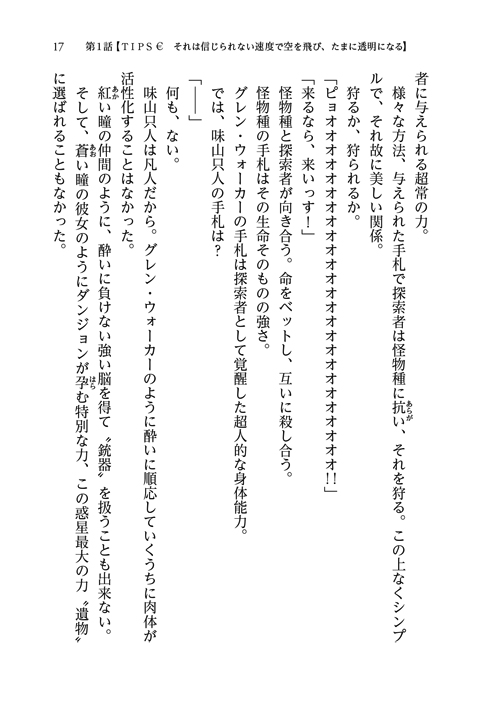 17　第1話【ＴＩＰＳ€　それは信じられない速度で空を飛び、たまに透明になる】
者に与えられる超常の力。
様々な方法、与えられた手札で探索者は怪物種に抗い、それを狩る。この上なくシンプ
ルで、それ故に美しい関係。
狩るか、狩られるか。
「ピョオオオオオオオオオオオオオオオオオオオオオオオオ!!」
「来るなら、来いっす！」
怪物種と探索者が向き合う。命をベットし、互いに殺し合う。
怪物種の手札はその生命そのものの強さ。
グレン・ウォーカーの手札は探索者として覚醒した超人的な身体能力。
では、味山只人の手札は？
「――」
何も、ない。
味山只人は凡人だから。グレン・ウォーカーのように酔いに順応していくうちに肉体が
活性化することはなかった。
紅い瞳の仲間のように、酔いに負けない強い脳を得て〝銃器〟を扱うことも出来ない。
そして、蒼い瞳の彼女のようにダンジョンが孕む特別な力、この惑星最大の力〝遺物〟
に選ばれることもなかった。